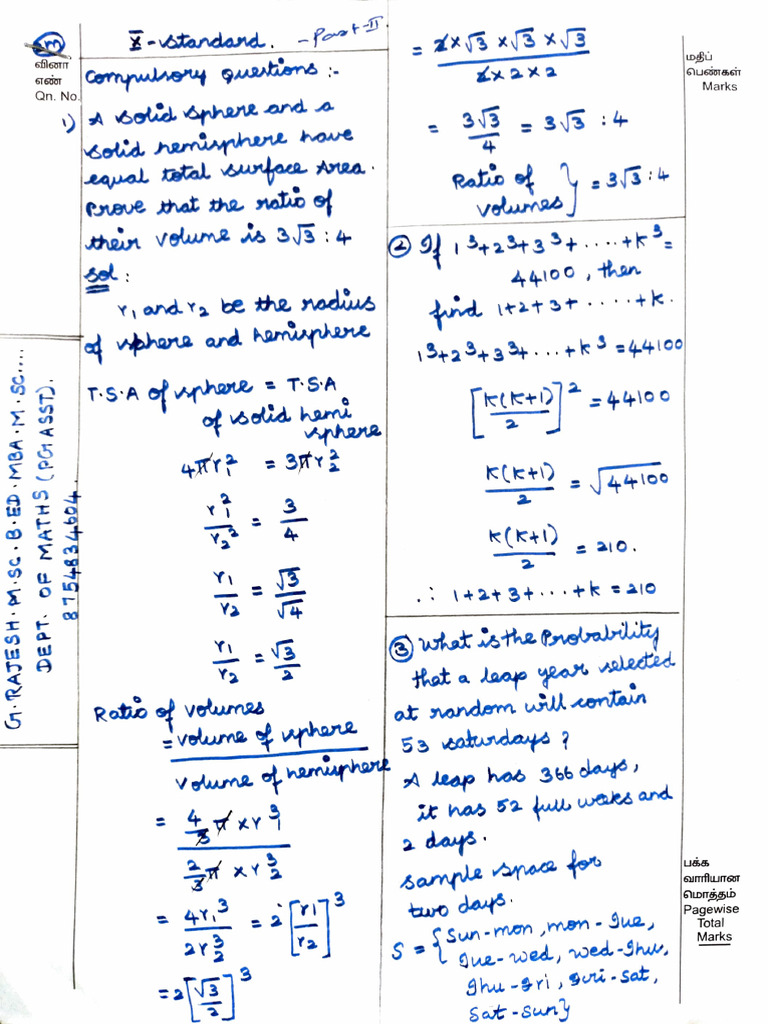 ③
வினா
எண்
Qn. No.
X - standard. - Part-II
Compulsory Questions :-
1) A solid sphere and a
solid hemisphere have
equal total surface area.
Prove that the ratio of
their volume is 3√3 : 4
Sol :
r₁ and r₂ be the radius
of sphere and hemisphere
T.S.A of sphere = T.S.A
of solid hemi
sphere
4πr₁² = 3πr₂²
r₁²/r₂² = 3/4
r₁/r₂ = √3/√4
r₁/r₂ = √3/2
Ratio of volumes
= volume of sphere / volume of hemisphere
= 4/3 π × r₁³ / 2/3 π × r₂³
= 4r₁³/2r₂³ = 2[r₁/r₂]³
= 2[√3/2]³
= 2×√3×√3×√3 / 2×2×2
= 3√3/4 = 3√3 : 4
Ratio of
volumes } = 3√3 : 4
② If 1³+2³+3³+.....+k³=
44100, then
find 1+2+3+......+k.
1³+2³+3³+...+k³ = 44100
[k(k+1)/2]² = 44100
k(k+1)/2 = √44100
k(k+1)/2 = 210.
∴ 1+2+3+...+k = 210
③ What is the Probability
that a leap year selected
at random will contain
53 saturdays ?
A leap has 366 days,
it has 52 full weeks and
2 days.
sample space for
two days.
S = {Sun-mon, mon-Tue,
Tue-wed, wed-Thu,
Thu-Fri, Fri-Sat,
Sat-Sun}
மதிப்
பெண்கள்
Marks
பக்க
வாரியான
மொத்தம்
Pagewise
Total
Marks
G. RAJESH. M.SC. B.ED. MBA. M.SC....
DEPT. OF MATHS (PG ASST).
8754834604